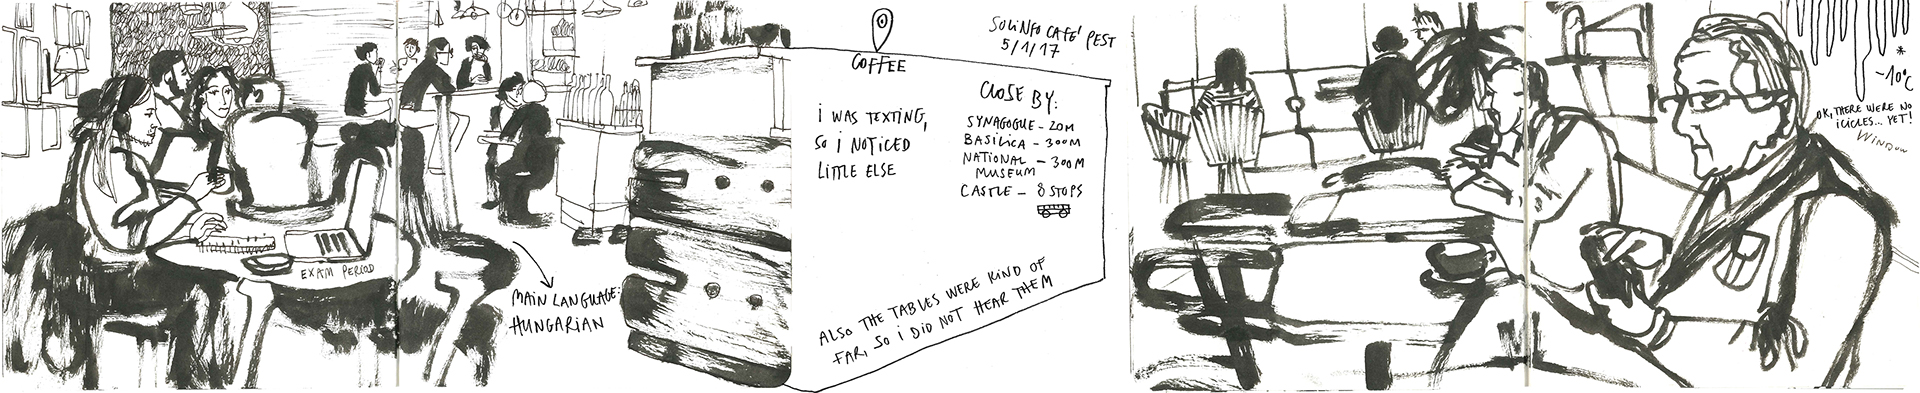 EXAM PERIOD
MAIN LANGUAGE:
HUNGARIAN
COFFEE
SOLINFO CAFÉ PEST
5/1/17
I WAS TEXTING,
SO I NOTICED
LITTLE ELSE
CLOSE BY:
SYNAGOGUE - 20M
BASILICA - 300M
NATIONAL - 300M
MUSEUM
CASTLE - 8 STOPS
ALSO THE TABLES WERE KIND OF
FAR, SO I DID NOT HEAR THEM
*
-10°C
OK, THERE WERE NO
ICICLES... YET!
WINDOW